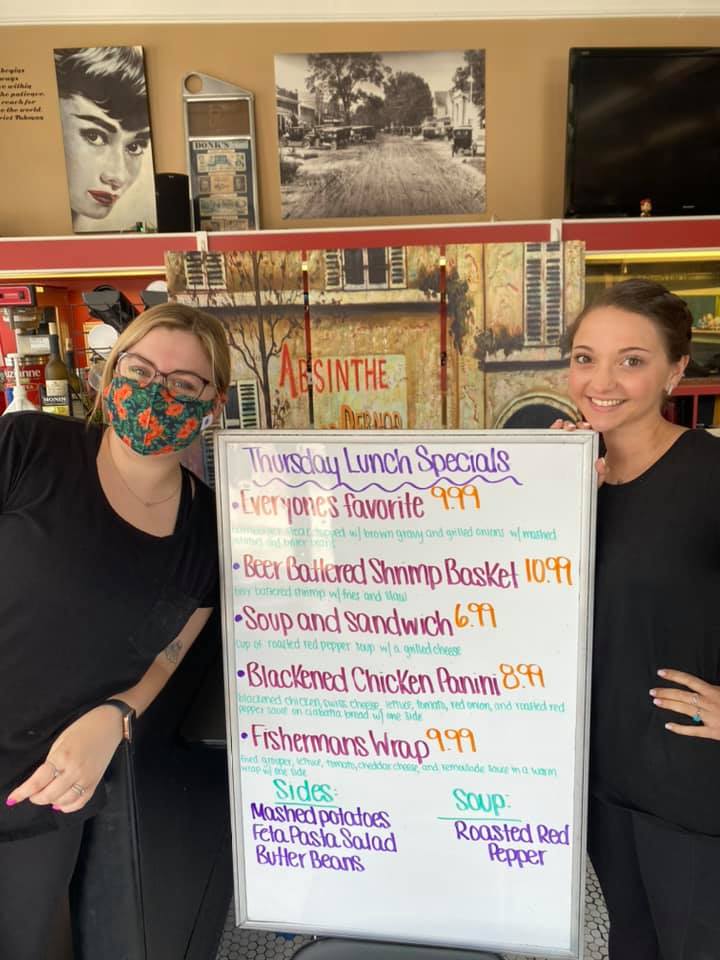 begins
ways
e within
he patience,
reach for
o the world.
riet Tubman
DONK'S
ABSINTHE
PERNOD
MONIN
Thursday Lunch Specials
• Everyones favorite 9.99
topped w/ brown gravy and grilled onions w/ mashed
potatoes and butter beans
• Beer Battered Shrimp Basket 10.99
battered shrimp w/ fries and slaw
• Soup and sandwich 6.99
cup of roasted red pepper soup w/ a grilled cheese
• Blackened Chicken Panini 8.99
blackened chicken, swiss cheese, lettuce, tomato, red onion, and roasted red
pepper sauce on ciabatta bread w/ one side
• Fishermans Wrap 9.99
fried grouper, lettuce, tomato, cheddar cheese, and remoulade sauce in a warm
wrap w/ one side
Sides:
Mashed potatoes
Feta Pasta Salad
Butter Beans
Soup:
Roasted Red
Pepper